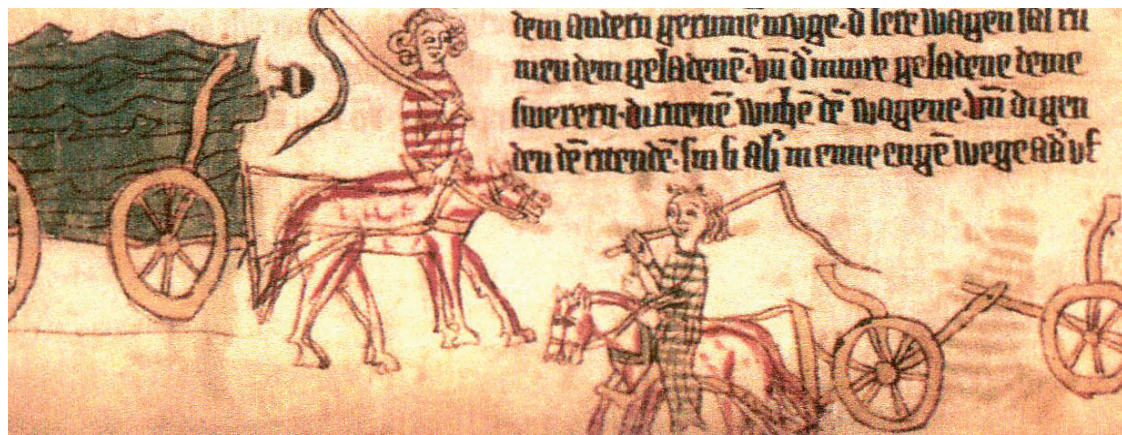 dem andern gerume muge · d lere wagen sal ru
men dem geladenē · vn̄ d̓ minre geladene deme
swerern · di ritene wichē dē wagene · vn̄ di gen
den dē ritende · sin si ab̓ in eime engē wege ad̓ vf